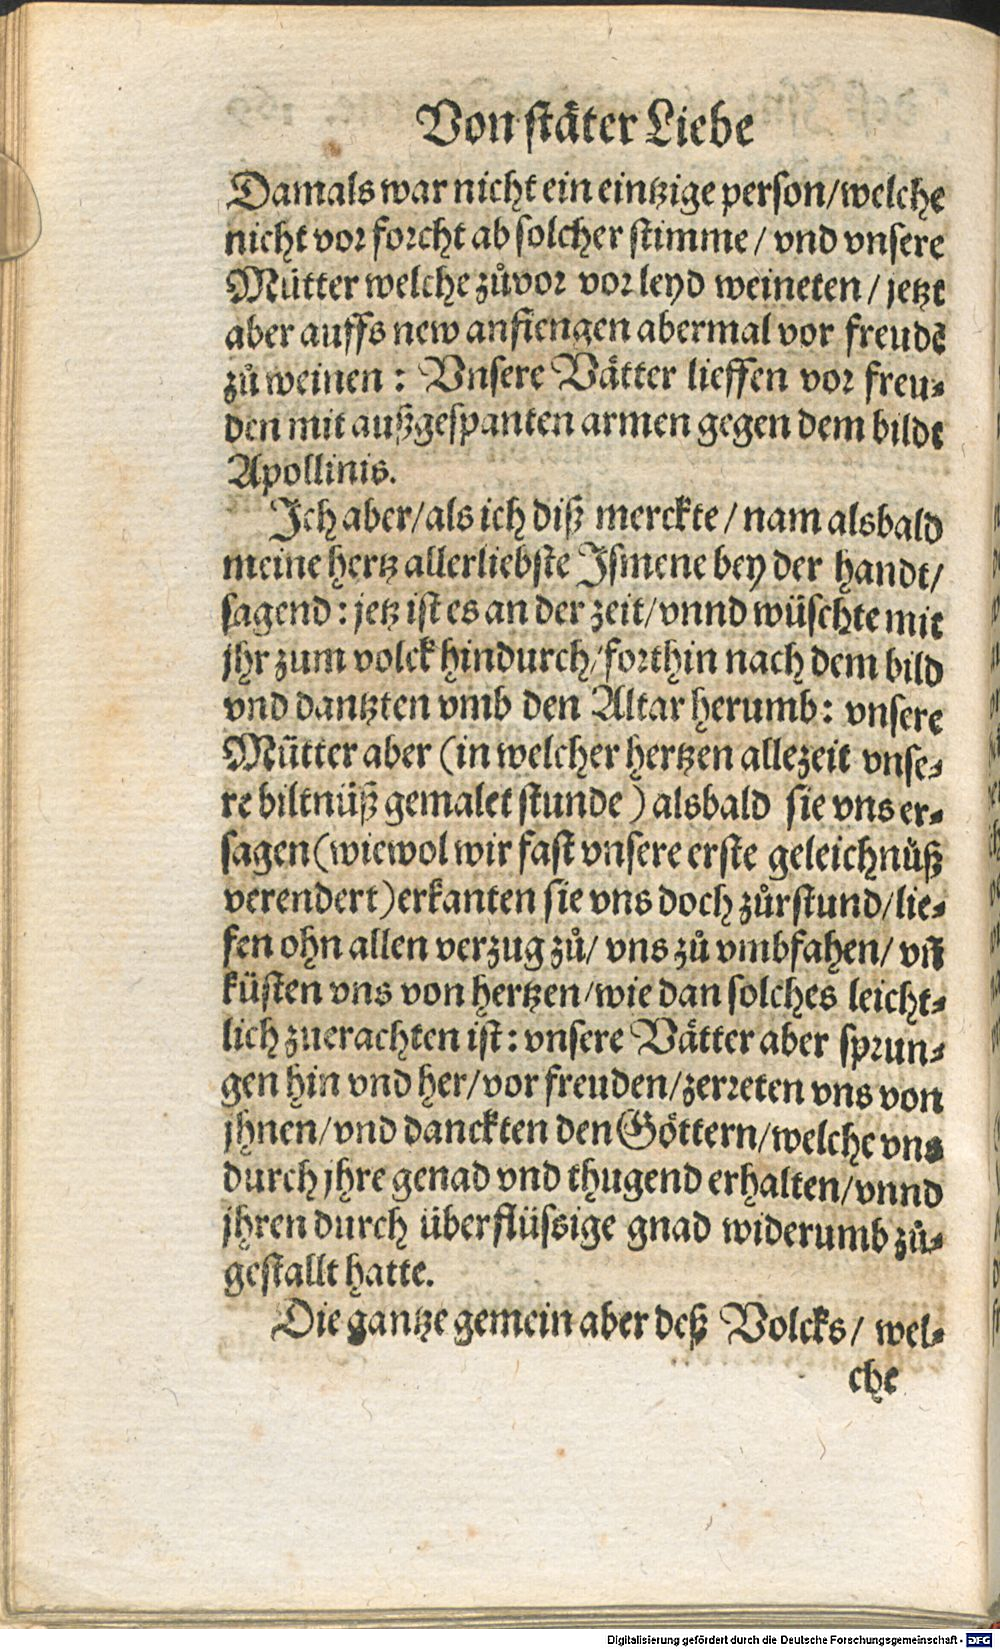 Von ståter Liebe
Damals war nicht ein eintzige person/welche
nicht vor forcht ab solcher stimme / vnd vnsere
Mütter welche zůvor vor leyd weineten / jetzt
aber auffs new anfiengen abermal vor freude
zů weinen : Vnsere Våtter lieffen vor freu-
den mit außgespanten armen gegen dem bilde
Apollinis.
Ich aber/als ich diß merckte / nam alsbald
meine hertz allerliebste Ismene bey der handt/
sagend : jetz ist es an der zeit/vnnd wüschte mit
jhr zum volck hindurch/forthin nach dem bild
vnd dantzten vmb den Altar herumb : vnsere
Mütter aber (in welcher hertzen allezeit vnse-
re biltnüß gemalet stunde ) alsbald sie vns er-
sagen (wiewol wir fast vnsere erste geleichnüß
verendert) erkanten sie vns doch zůrstund/lie-
fen ohn allen verzug zů/ vns zů vmbfahen/ vñ
küsten vns von hertzen/wie dan solches leicht-
lich zuerachten ist : vnsere Våtter aber sprun-
gen hin vnd her/vor freuden/zerreten vns von
jhnen/vnd danckten den Göttern/welche vns
durch jhre genad vnd thugend erhalten/vnnd
jhren durch überflüssige gnad widerumb zů-
gestallt hatte.
Die gantze gemein aber deß Volcks/ wel-
che
Digitalisierung gefördert durch die Deutsche Forschungsgemeinschaft - DFG